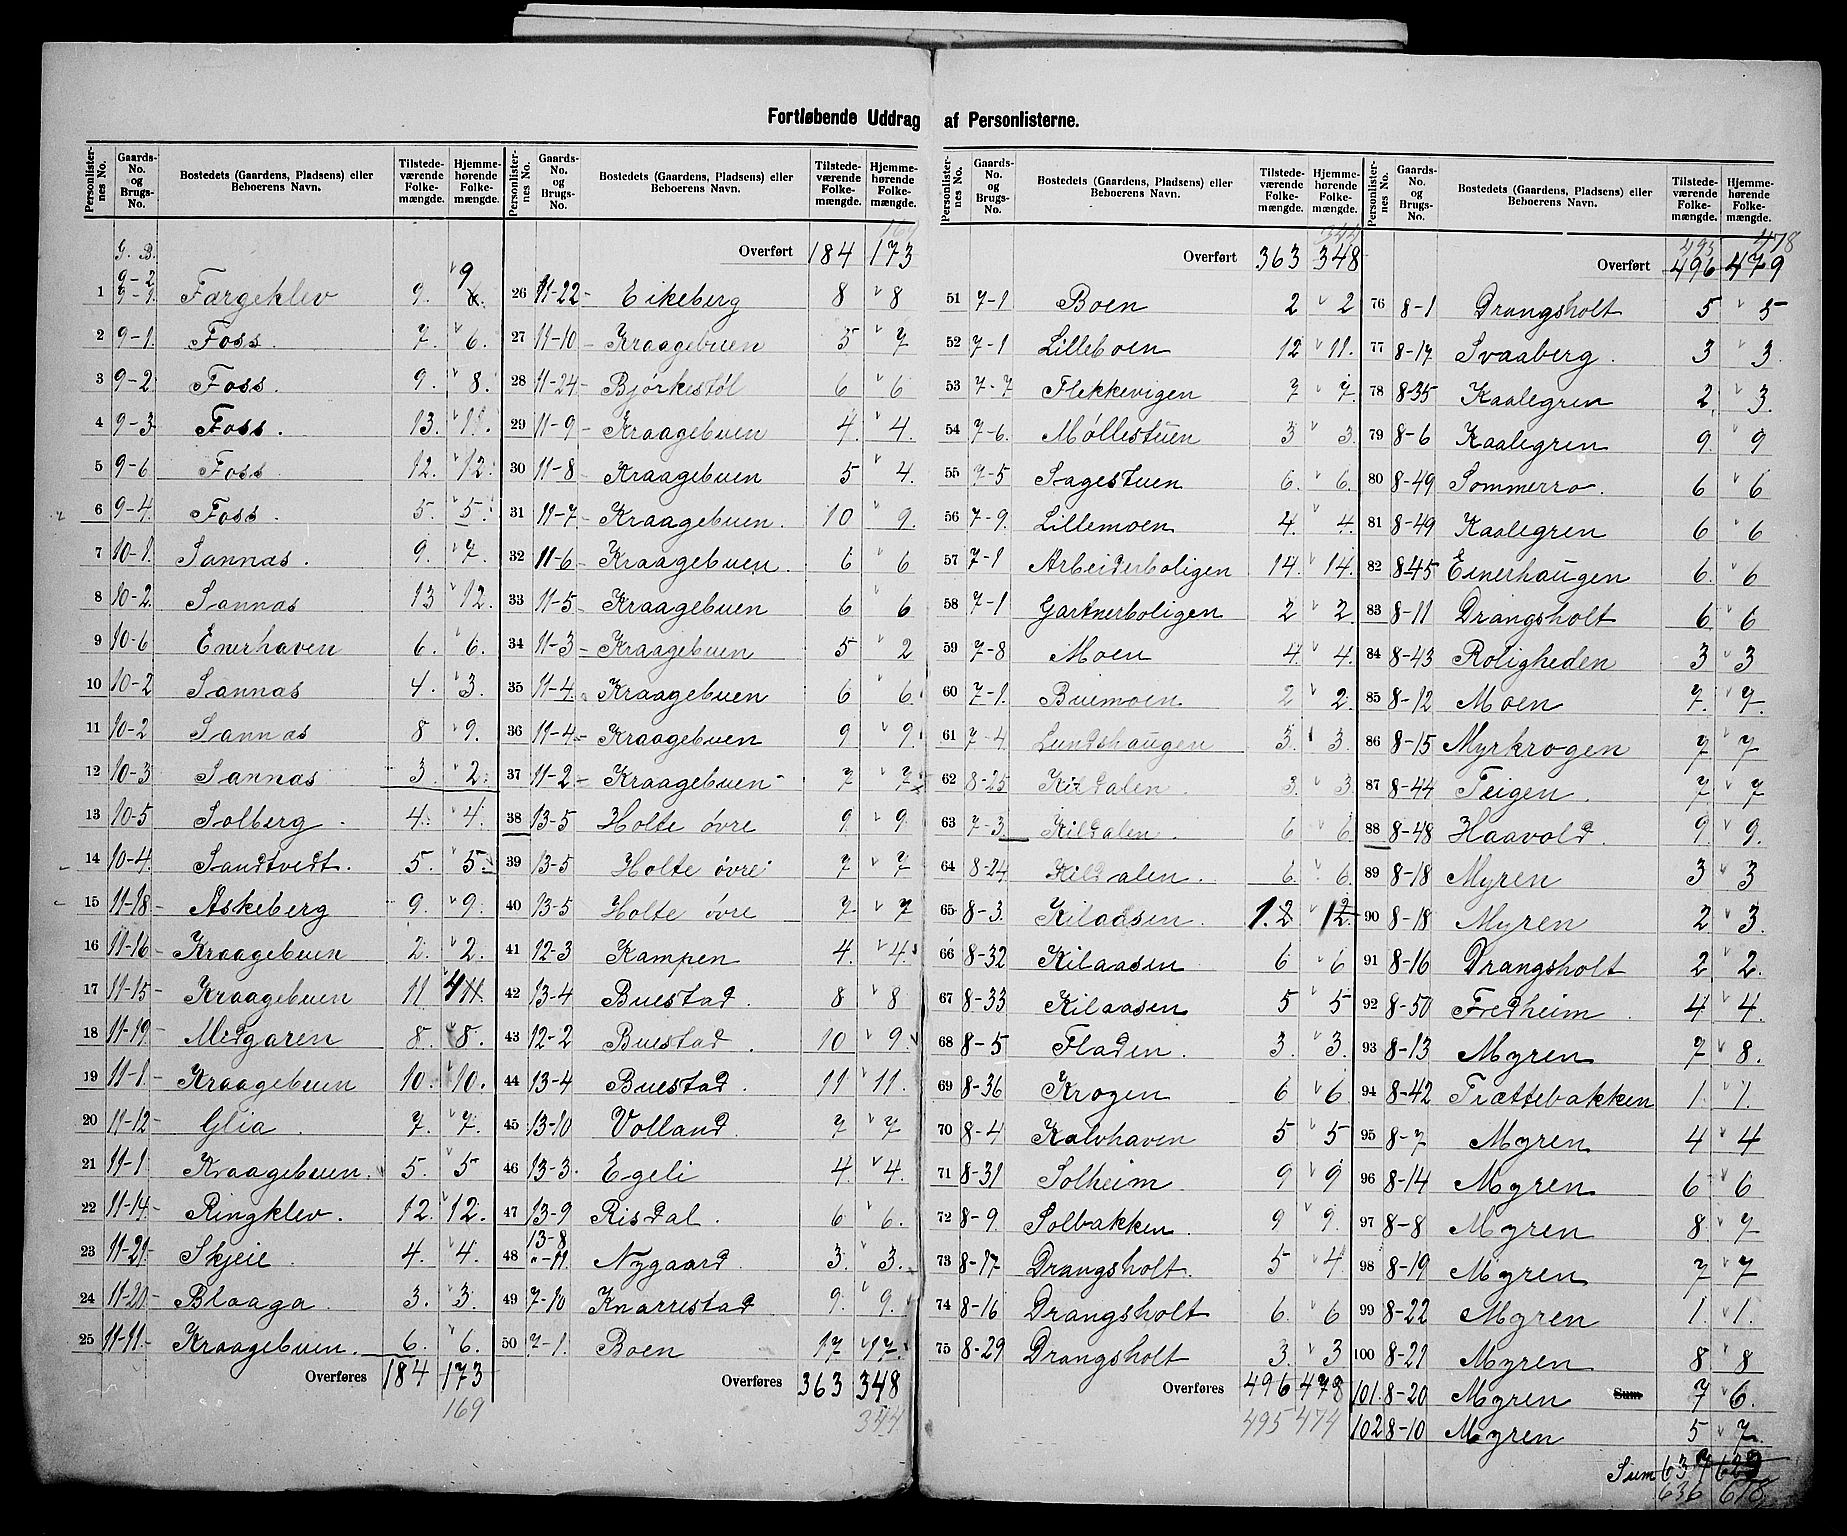 Fortløbende Uddrag af Personlisterne.
Personlister-nes No. Gaards-No. og Brugs-No. Bostedets (Gaardens, Pladsens) eller Beboerens Navn. Tilstede-værende Folke-mængde. Hjemme-hørende Folke-mængde.
G. B.
9-2
1 9-9. Færgeklev 9. 9 6.
2 9-1. Foss. 7. 6.
3 9-2. Foss. 9. 8.
4 9-3. Foss. 13. 11.
5 9-6 Foss. 12. 12.
6 9-4. Foss. 5. 5.
7 10-1. Sannas. 9. 7.
8 10-2. Sannas 13 12.
9 10-6 Enerhaven 6. 6.
10 10-2 Sannas 4. 3.
11 10-2 Sannas 8 9.
12 10-3 Sannas 3. 2.
13 10-5 Solberg. 4. 4.
14 10-4. Sandtvedt. 5. 5.
15 11-18- Askeberg 9. 9.
16 11-16- Kraagebuen 2. 2.
17 11-15- Kraagebuen 11 4 11
18 11-19- Medgaren 8. 8.
19 11-1- Kraagebuen 10. 10.
20 11-12- Glia. 7. 7.
21 11-1- Kraagebuen. 5. 5
22 11-14- Ringklev. 12. 12.
23 11-21- Skjeie. 4. 4.
24 11-20- Blaaga. 3. 3.
25 11-11- Kraagebuen. 6. 6.
Overføres 184 173
169
Personlister-nes No. Gaards-No. og Brugs-No. Bostedets (Gaardens, Pladsens) eller Beboerens Navn. Tilstede-værende Folke-mængde. Hjemme-hørende Folke-mængde.
169
Overført 184 173
26 11-22- Eikeberg 8 8
27 11-10- Kraagebuen 5 7
28 11-24- Bjørkestøl 6 6
29 11-9- Kraagebuen 4. 4.
30 11-8- Kraagebuen 5 4.
31 11-7- Kraagebuen. 10 9.
32 11-6- Kraagebuen. 6 6
33 11-5- Kraagebuen 6 6
34 11-3- Kraagebuen 5 2
35 11-4. Kraagebuen 6 6.
36 11-4- Kraagebuen 9 9.
37 11-2- Kraagebuen- 7 7
38 13-5 Holte øvre 9. 9.
39 13-5 Holte øvre 7 7
40 13-5 Holte øvre 7. 7
41 12-3 Kampen 4. 4
42 13-4 Buestad. 8 8
43 12-2 Buestad. 10 9.
44 13-4 Buestad. 11 11
45 13-10 Volland. 7 7
46 13-3. Egeli 4. 4.
47 13-9 Risdal. 6 6.
13-8
48 "-11 Nygaard. 3. 3.
49 7-10 Knarrestad 9. 9.
50 7-1. Boen 17 17.
Overføres 363 348
344
Personlister-nes No. Gaards-No. og Brugs-No. Bostedets (Gaardens, Pladsens) eller Beboerens Navn. Tilstede-værende Folke-mængde. Hjemme-hørende Folke-mængde.
344
Overført 363 348
51 7-1 Boen 2 2
52 7-1 Lilleboen 12 11.
53 7-7 Flekkevigen 7 7.
54 7-6. Møllestuen 3 3.
55 7-5 Sagestuen 6. 6.
56 7-9. Lillemoen 4. 4.
57 7-1 Arbeiderboligen 14. 14.
58 7-1 Gartnerboligen 2 2.
59 7-8 Moen 4. 4.
60 7-1. Buemoen 2 2.
61 7-4 Lundshaugen 3. 3.
62 8-25 Kildalen. 3. 3
63 7-3. Kildalen. 6 6.
64 8-24 Kildalen. 6. 6.
65 8-3. Kilaasen 1.2 12.
66 8-32 Kilaasen 6 6
67 8-33 Kilaasen 5 5
68 8-5 Fladen. 3. 3.
69 8-36 Krogen 6 6
70 8-4 Kalvhaven 5 5
71 8-31 Solheim. 9 9
72 8-9. Solbakken. 9 9.
73 8-17 Drangsholt. 5 4.
74 8-16 Drangsholt 6. 6
75 8-29 Drangsholt 3. 3
Overføres 496 478
495 474
Personlister-nes No. Gaards-No. og Brugs-No. Bostedets (Gaardens, Pladsens) eller Beboerens Navn. Tilstede-værende Folke-mængde. Hjemme-hørende Folke-mængde.
495 478
Overført 496 479
76 8-1 Drangsholt 5 5
77 8-17 Svaaberg. 3 3.
78 8-35 Kaalegren 2. 3.
79 8-6 Kaalegren 9. 9
80 8-49 Sommerro. 6 6
81 8-49 Kaalegren 6 6
82 8-45 Einerhaugen 6. 6
83 8-11 Drangsholt 6 6
84 8-43 Roligheden 3 3
85 8-12 Moen 7. 7.
86 8-15 Myrkrogen 7 7
87 8-44 Teigen. 7 7
88 8-48 Haavold. 9. 9.
89 8-18 Myren 3 3
90 8-18 Myren 2 3.
91 8-16 Drangsholt 2 2.
92 8-50 Fredheim. 4 4.
93 8-13 Myren 7 8.
94 8-42 Trættebakken 1. 1.
95 8-7 Myren 4 4
96 8-14 Myren 6 6
97 8-8 Myren 8. 7
98 8-19 Myren 7 7
99 8-22 Myren 1. 1.
100 8-21 Myren 8 8
101. 8-20 Myren Sum 7 6.
102 8-10 Myren 5 7.
Sum 637 623
636 618